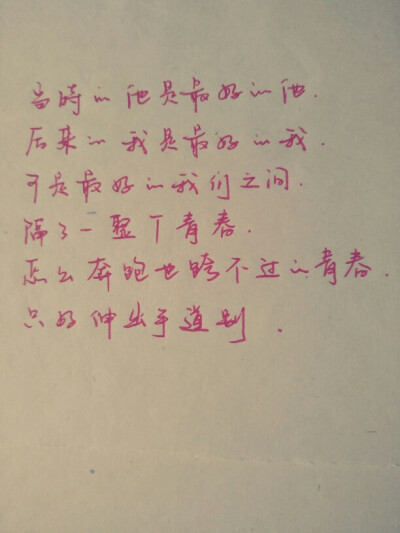 当时的他是最好的他.
后来的我是最好的我.
可是最好的我们之间.
隔了一整个青春.
怎么奔跑也跨不过的青春.
只好伸出手道别.